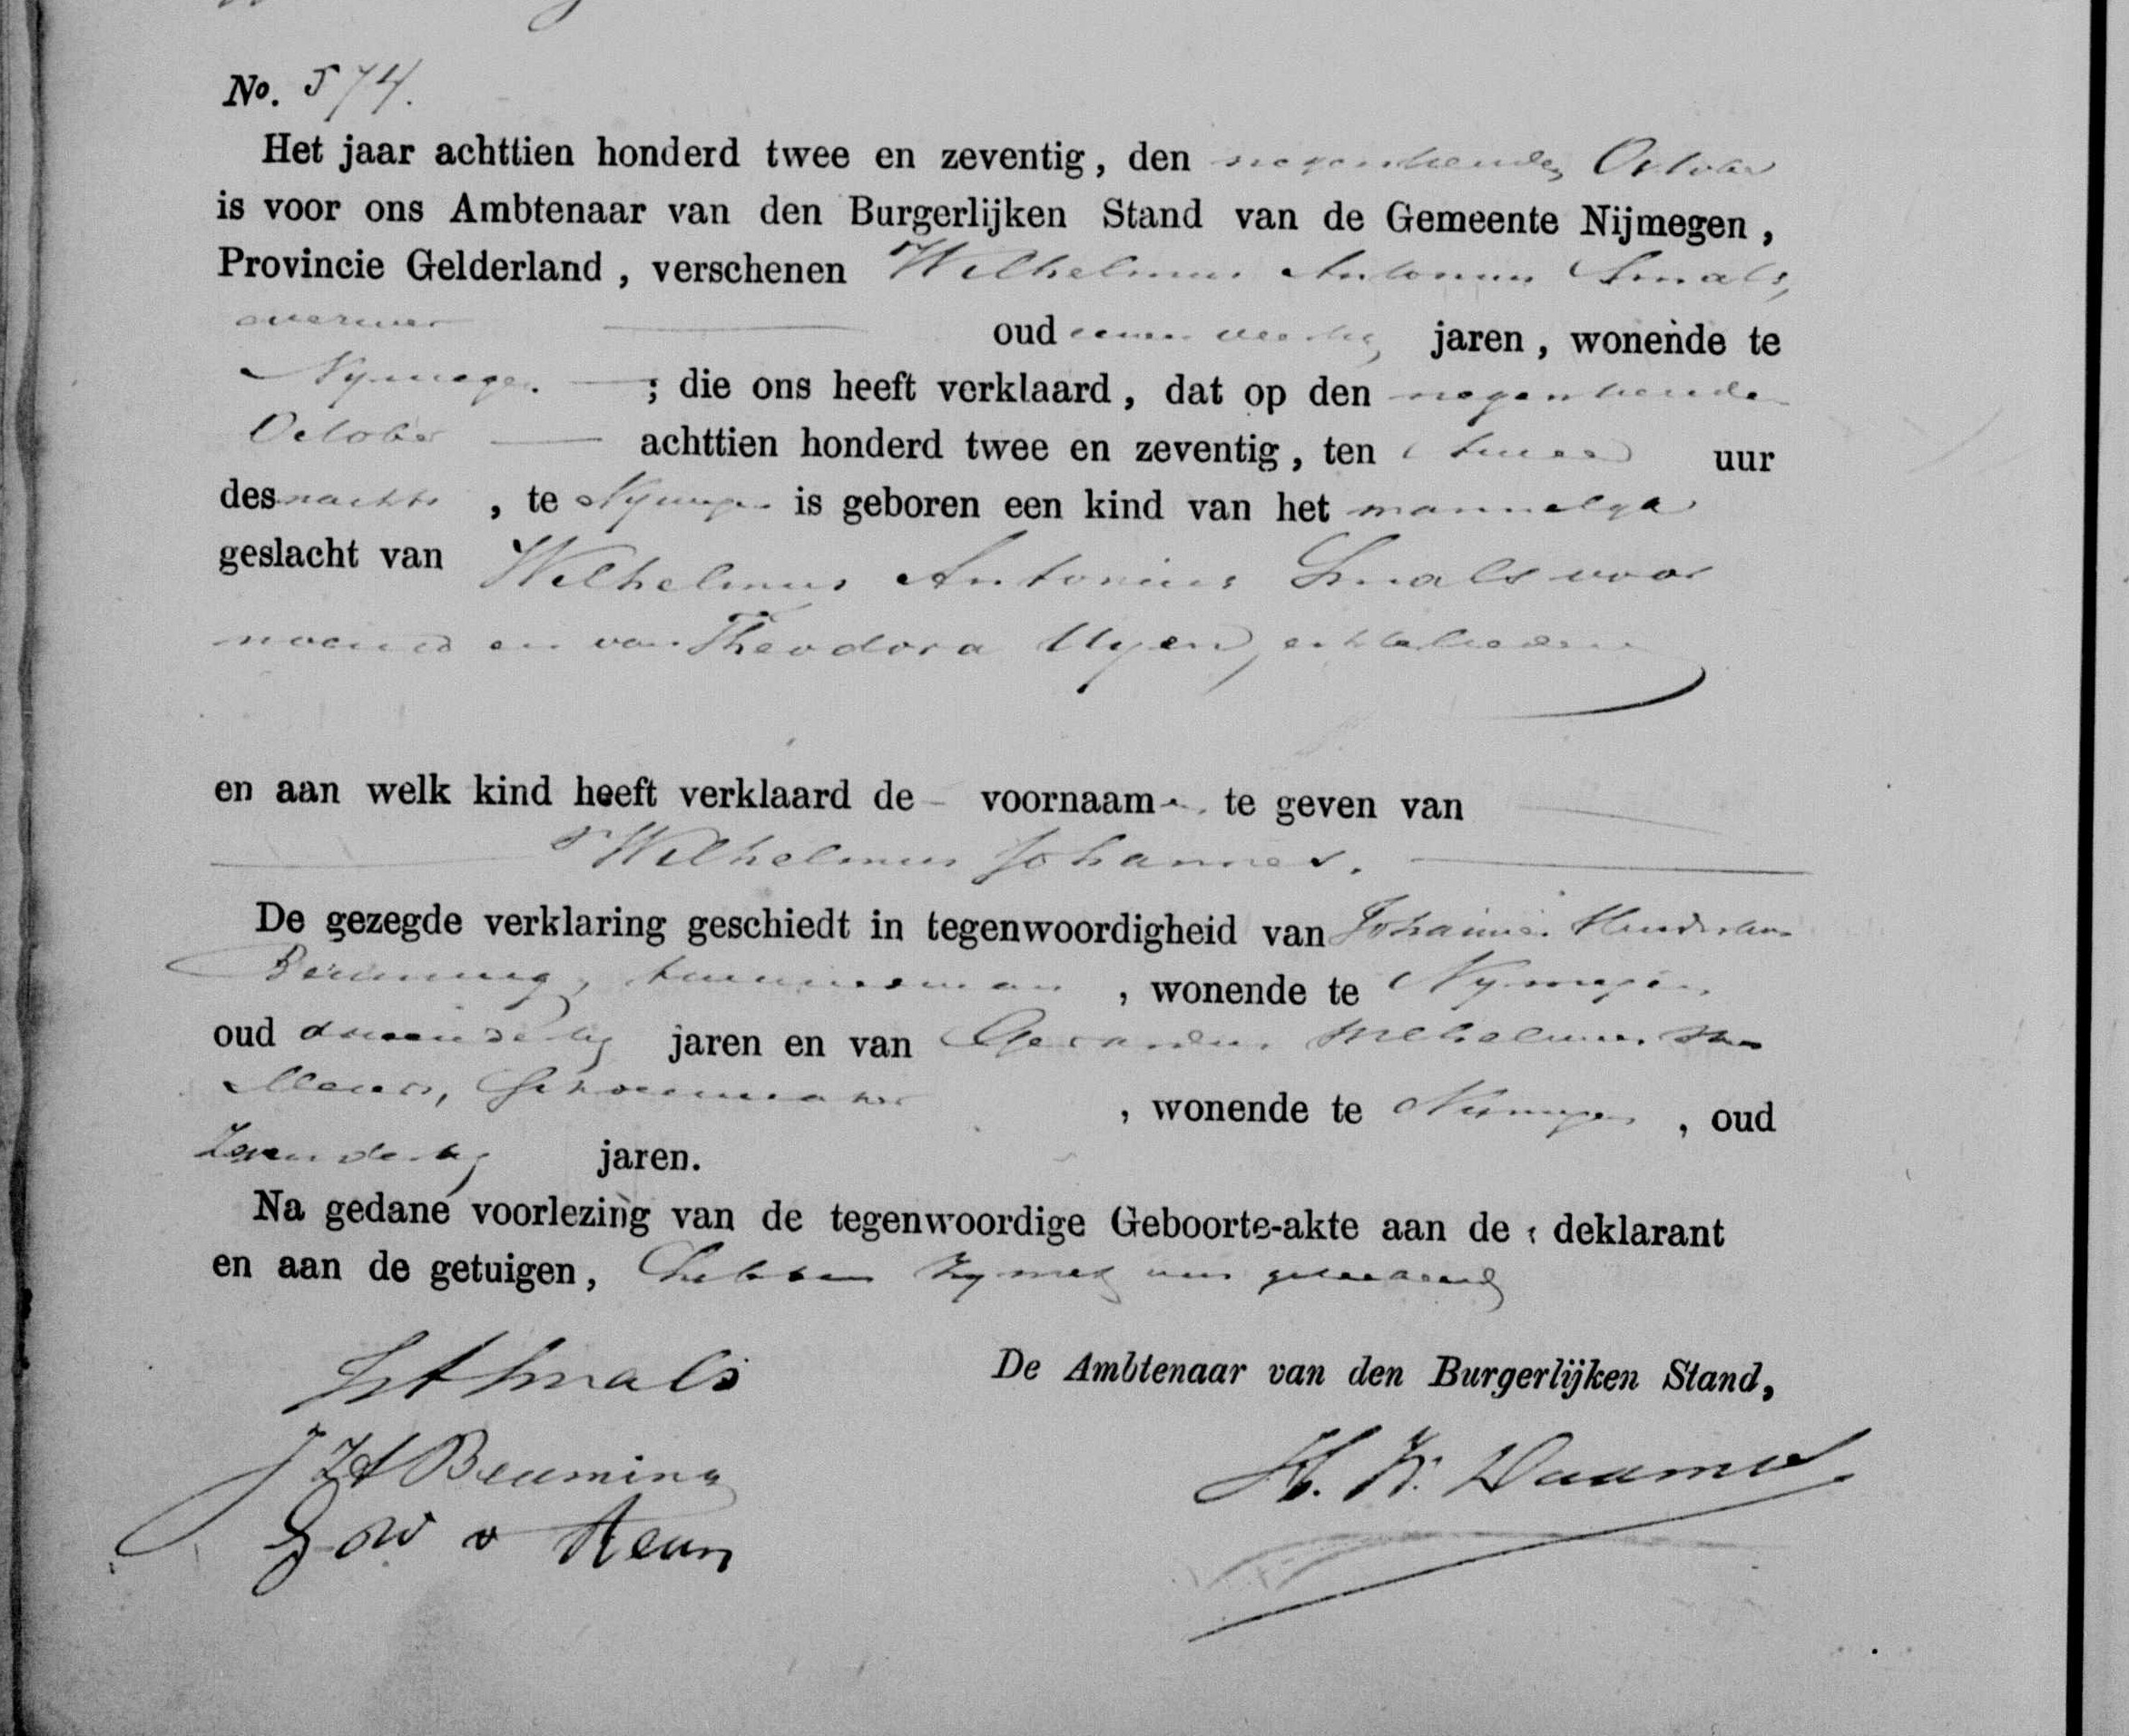 No. 574.
Het jaar achttien honderd twee en zeventig, den negentienden October
is voor ons Ambtenaar van den Burgerlijken Stand van de Gemeente Nijmegen,
Provincie Gelderland, verschenen Wilhelmus Antonius Smals,
oud jaren, wonende te
Nymegen — ; die ons heeft verklaard, dat op den negentienden
October — achttien honderd twee en zeventig, ten twee uur
des nachts, te Nymegen is geboren een kind van het mannelyk
geslacht van Wilhelmus Antonius Smals voor
noemd en van Theodora Uyen, echtelieden
en aan welk kind heeft verklaard de voornaam te geven van
Wilhelmus Johannes.
De gezegde verklaring geschiedt in tegenwoordigheid van Johannes Hendrikus
Beuming, timmerman, wonende te Nymegen,
oud jaren en van Gerardus Wilhelmus van
schoenmaker, wonende te Nymegen, oud
zevendertig jaren.
Na gedane voorlezing van de tegenwoordige Geboorte-akte aan de deklarant
en aan de getuigen, hebben zy met ons geteekend
W A Smals
De Ambtenaar van den Burgerlijken Stand,
J H Beuming
G W v